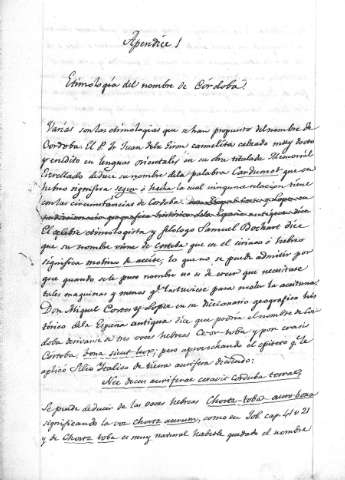 Apendice 1
Etimología del nombre de Córdoba.
Varias son las etimologias que se han propuesto del nombre de
Cordoba. El P. Fr. Juan de la carmelita calzado muy docto
y erudito en lenguas orientales en su obra titulada Memorial
deduce su nombre de la palabra que en
hebreo significa segur ó hacha la cual ninguna relacion tiene
con las circunstancias de Cordoba
El célebre etimologista y filologo Samuel Bochart dice
que su nombre viene de que en el siriaco ó hebreo
significa molino de aceite, lo que no se puede admitir por
que cuando se le puso nombre no es de creer que necesitase
tales maquinas y menos qe las tuviese para moler la aceituna.
Don Miguel Cortes y Lopez en su diccionario geografico his
tórico de la España antigua dice que podria el nombre de Cor
doba derivarse de tres voces hebreas y por crasis
Cortoba, bona sicut lux; pero aprovechando el epiteto qe le
aplicó Silio Italico de tierra aurifera diciendo:
Nec decus auriferae cessavit corduba terrae
Se puede deducir de las voces hebreas Chorez-toba, auro bona
significando la voz Chorez aurum, como en Job cap. 41 v 21
y de Chorez toba es muy natural quedado el nombre